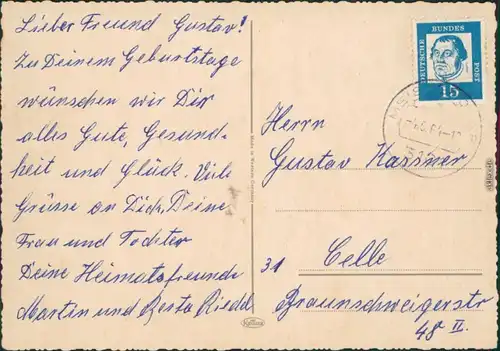 Lieber Freund Gustav!
Zu Deinem Geburtstage
wünschen wir Dir
alles Gute, Gesund-
heit und Glück. Viele
Grüsse an Dich, Deine
Frau und Tochter
Deine Heimatsfreunde
Martin und Berta Riedel
DEUTSCHE
BUNDES
POST
15
Herrn
Gustav Kassner
31 Celle
Braunschweigerstr
48 II.